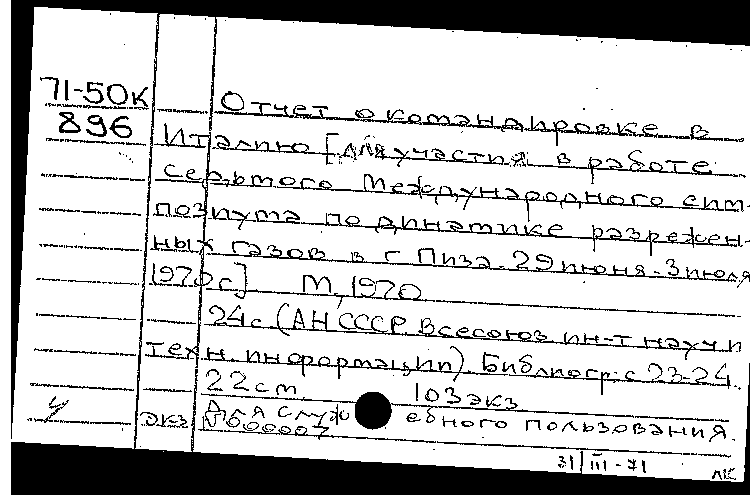 71-50К
896
Отчет о командировке в
Италию [для участия в работе
седьмого Международного сим-
позиума по динамике разрежен-
ных газов в г Пиза. 29 июня-3 июля
1970 г.] М, 1970
24 с (АН СССР. Всесоюз ин-т науч и
техн. информации). Библиогр: с 23-24.
22 см. 103 экз
Для служебного пользования.
экз №000007
31/III-71